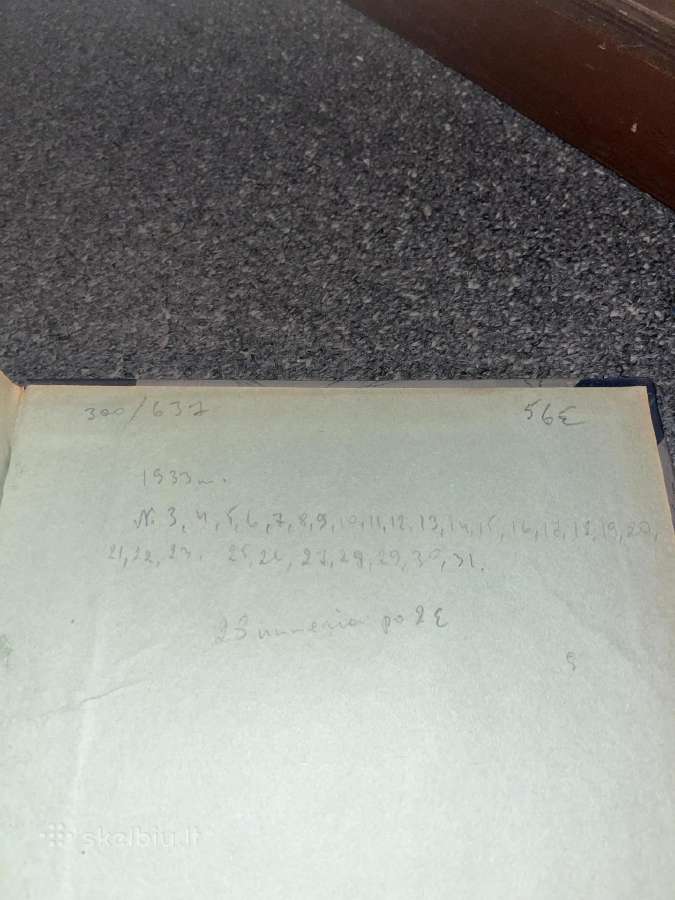 300/637
56€
1933 m.
N. 3, 4, 5, 6, 7, 8, 9, 10, 11, 12, 13, 14, 15, 16, 17, 18, 19, 20,
21, 22, 23. 25, 26, 27, 28, 29, 30, 31.
28 numeriai po 2€
skelbiu.lt